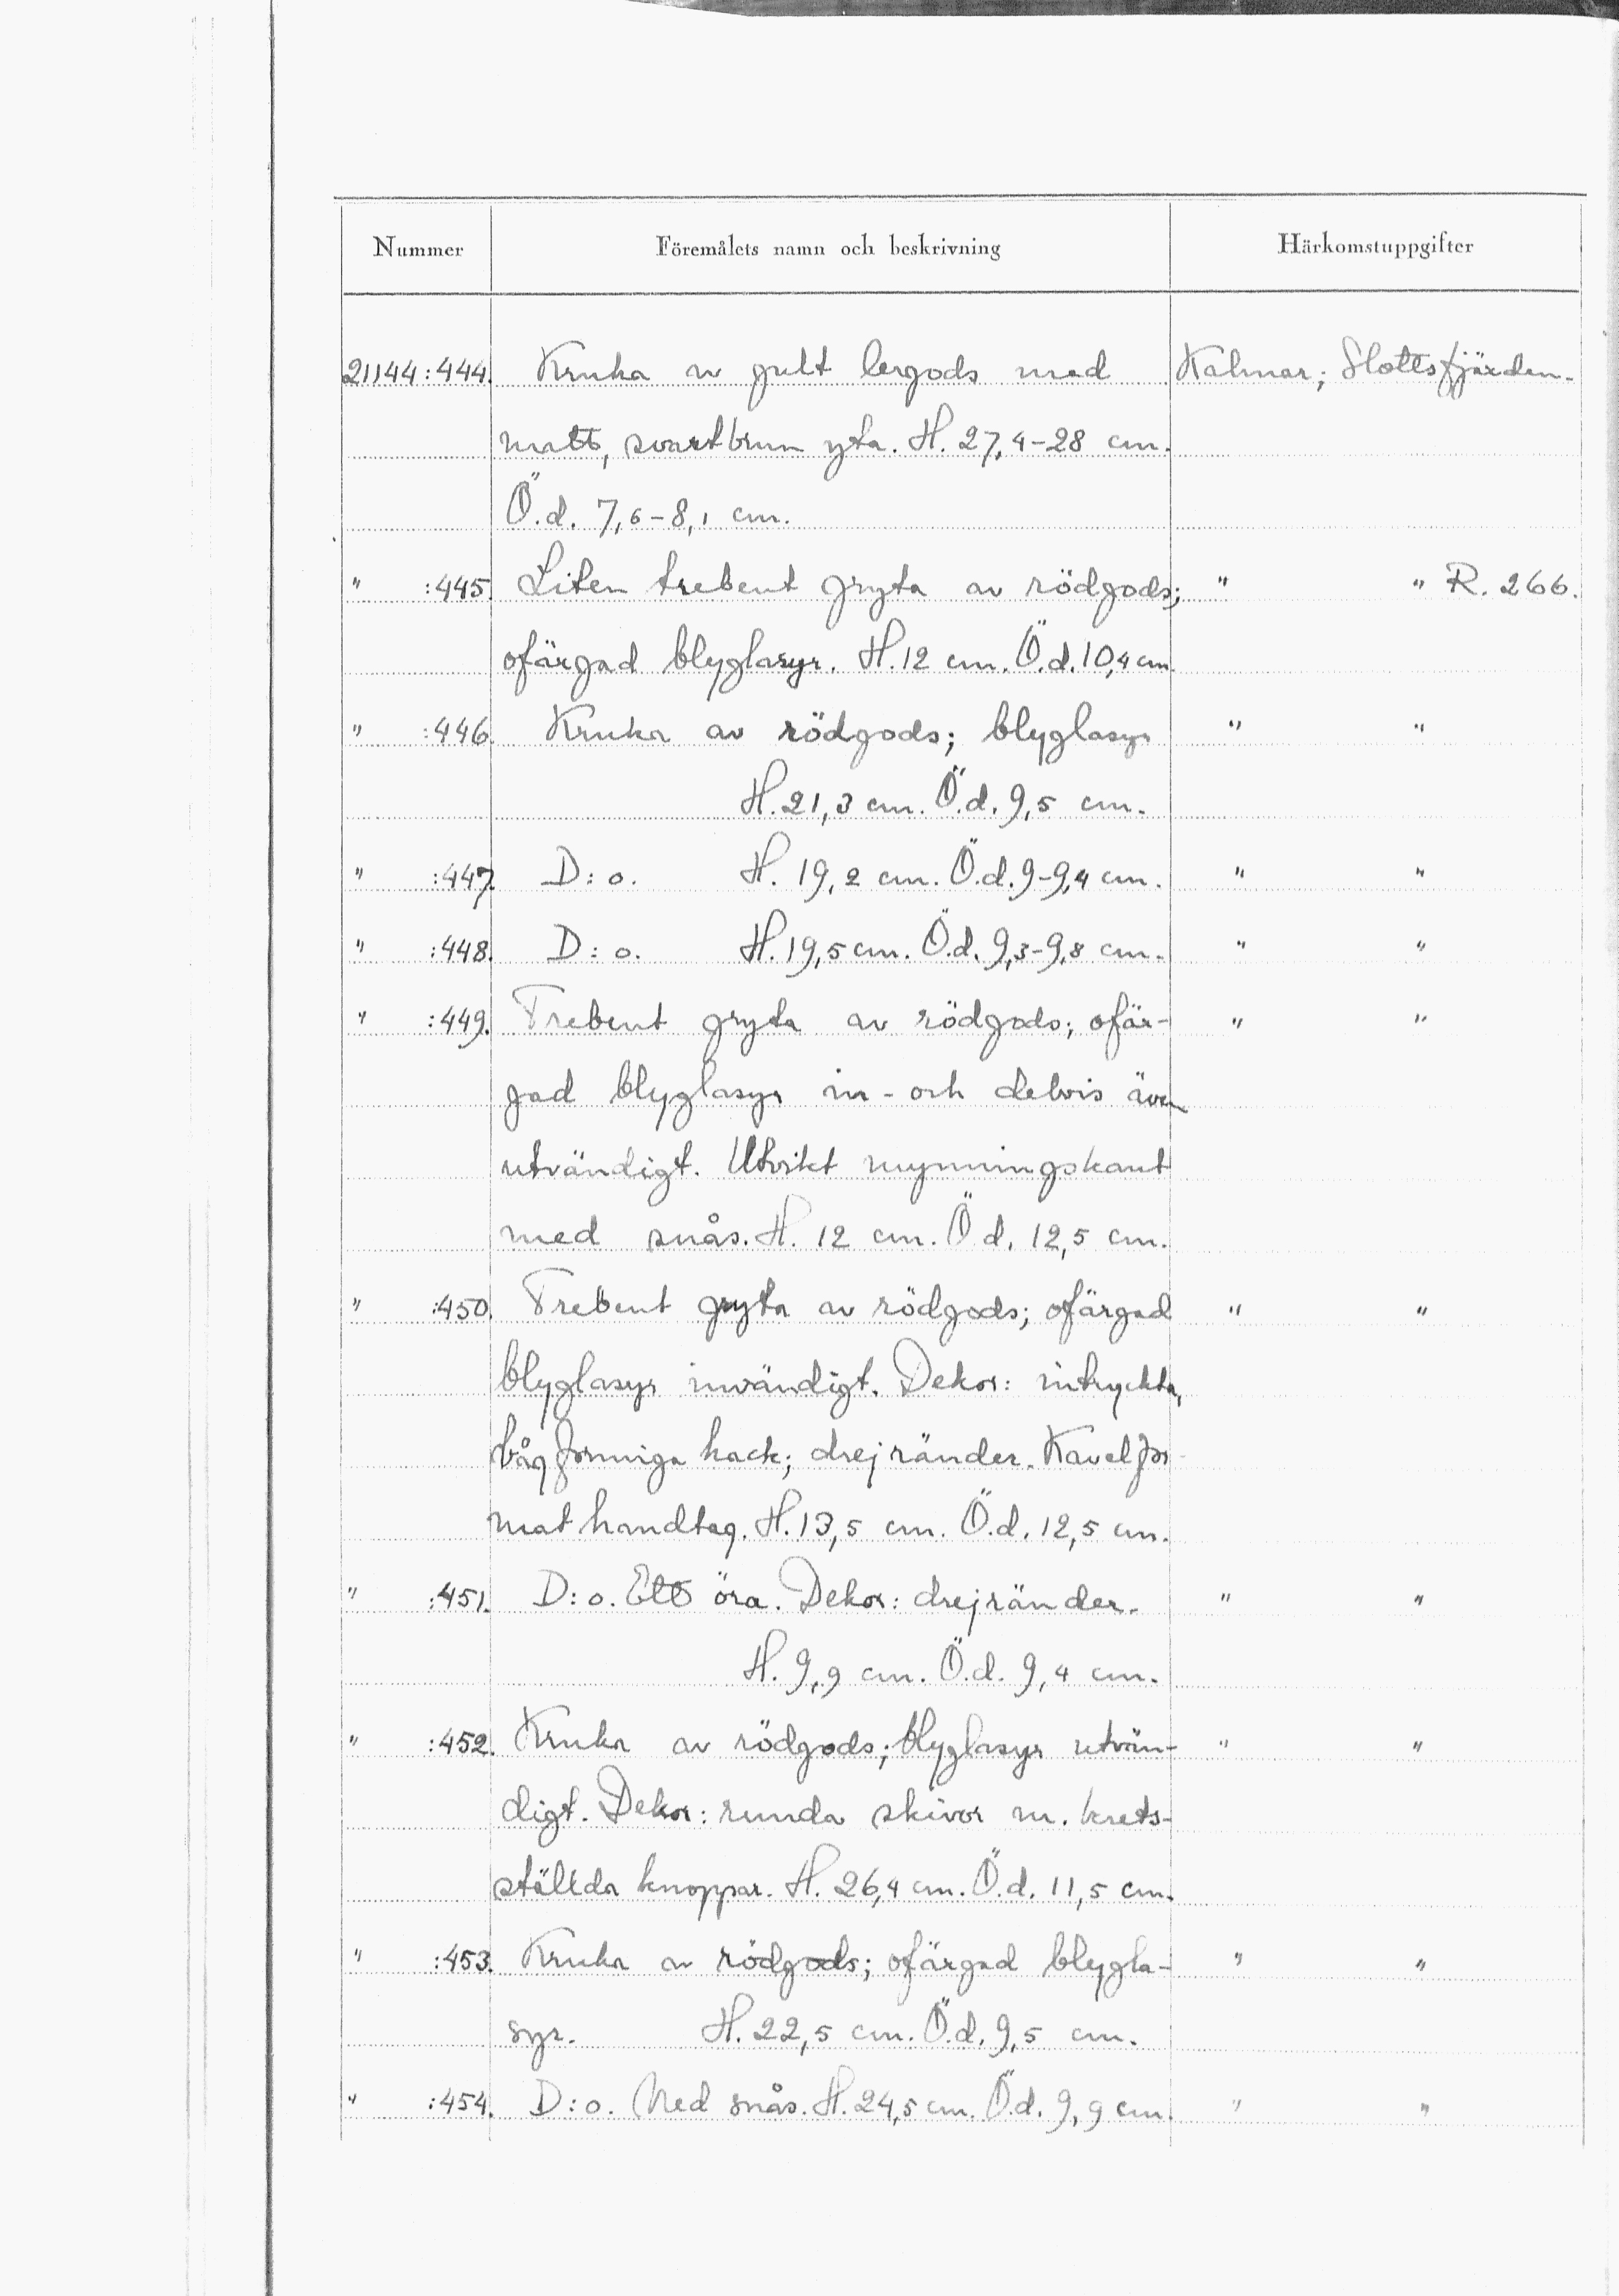 Nummer Föremålets namn och beskrivning Härkomstuppgifter
21144:444. Kruka av gult lergods med Kalmar; Slottsfjärden.
matt, svartbrun yta. H. 27,4-28 cm.
Ö.d. 7,6-8,1 cm.
" :445. Liten trebent gryta av rödgods; " " R. 266.
ofärgad blyglasyr. H. 12 cm. Ö.d. 10,4 cm.
" :446. Kruka av rödgods; blyglasyr " "
H. 21,3 cm. Ö.d. 9,5 cm.
" :447. D:o. H. 19,2 cm. Ö.d. 9-9,4 cm. " "
" :448. D:o. H. 19,5 cm. Ö.d. 9,3-9,8 cm. " "
" :449. Trebent gryta av rödgods; ofär- " "
gad blyglasyr in- och delvis även
utvändigt. Utvikt mynningskant
med snås. H. 12 cm. Ö.d. 12,5 cm.
" :450. Trebent gryta av rödgods; ofärgad " "
blyglasyr invändigt. Dekor: intryckta,
bågformiga hack; drejränder. Kavelfor-
mat handtag. H. 13,5 cm. Ö.d. 12,5 cm.
" :451. D:o. Ett öra. Dekor: drejränder. " "
H. 9,9 cm. Ö.d. 9,4 cm.
" :452. Kruka av rödgods; blyglasyr utvän- " "
digt. Dekor: runda skivor m. krets-
ställda knoppar. H. 26,4 cm. Ö.d. 11,5 cm.
" :453. Kruka av rödgods; ofärgad blygla- " "
syr. H. 22,5 cm. Ö.d. 9,5 cm.
" :454. D:o. Med snås. H. 24,5 cm. Ö.d. 9,9 cm. " "